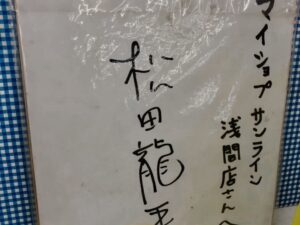 マイショップ サンライン
浅間店さんへ
松田龍